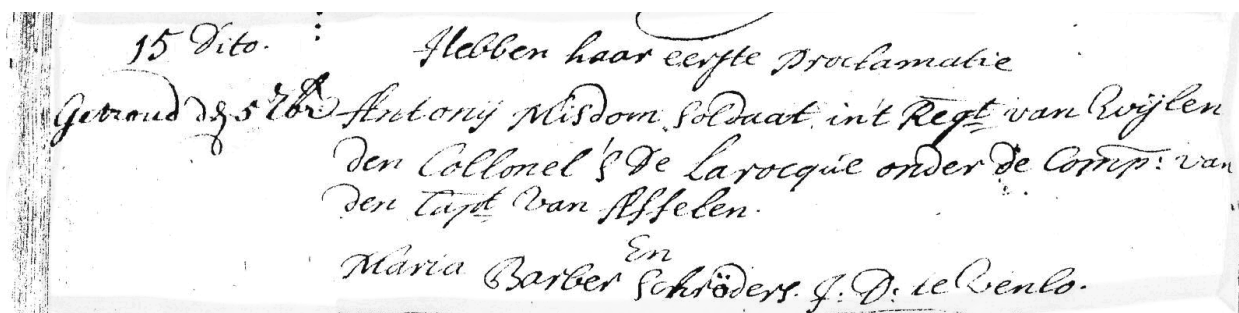 15 Dito. Hebben haar eerste Proclamatie
Getroud d 5 Antonij Misdom Soldaat in't Regt van Wijlen
den Collonel De Larocque onder de Comp: van
den Capt Van Asselen.
En
Maria Barber Schröders. J: D: te Venlo.